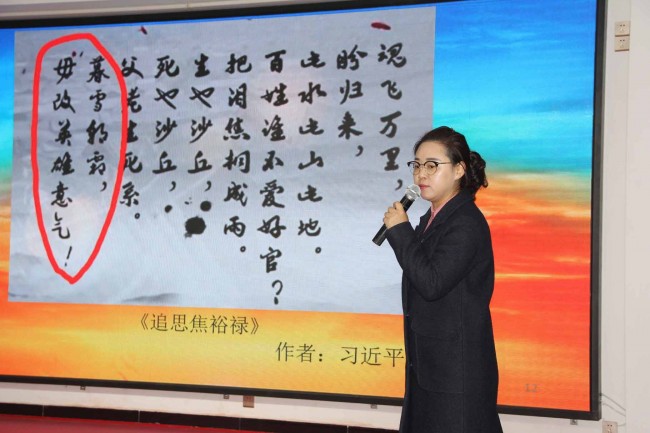 魂飞万里，
盼归来，
此水此山此地。
百姓谁不爱好官？
把泪焦桐成雨。
生也沙丘，
死也沙丘，
父老生死系。
暮雪朝霜，
毋改英雄意气！
《追思焦裕禄》
作者：习近平